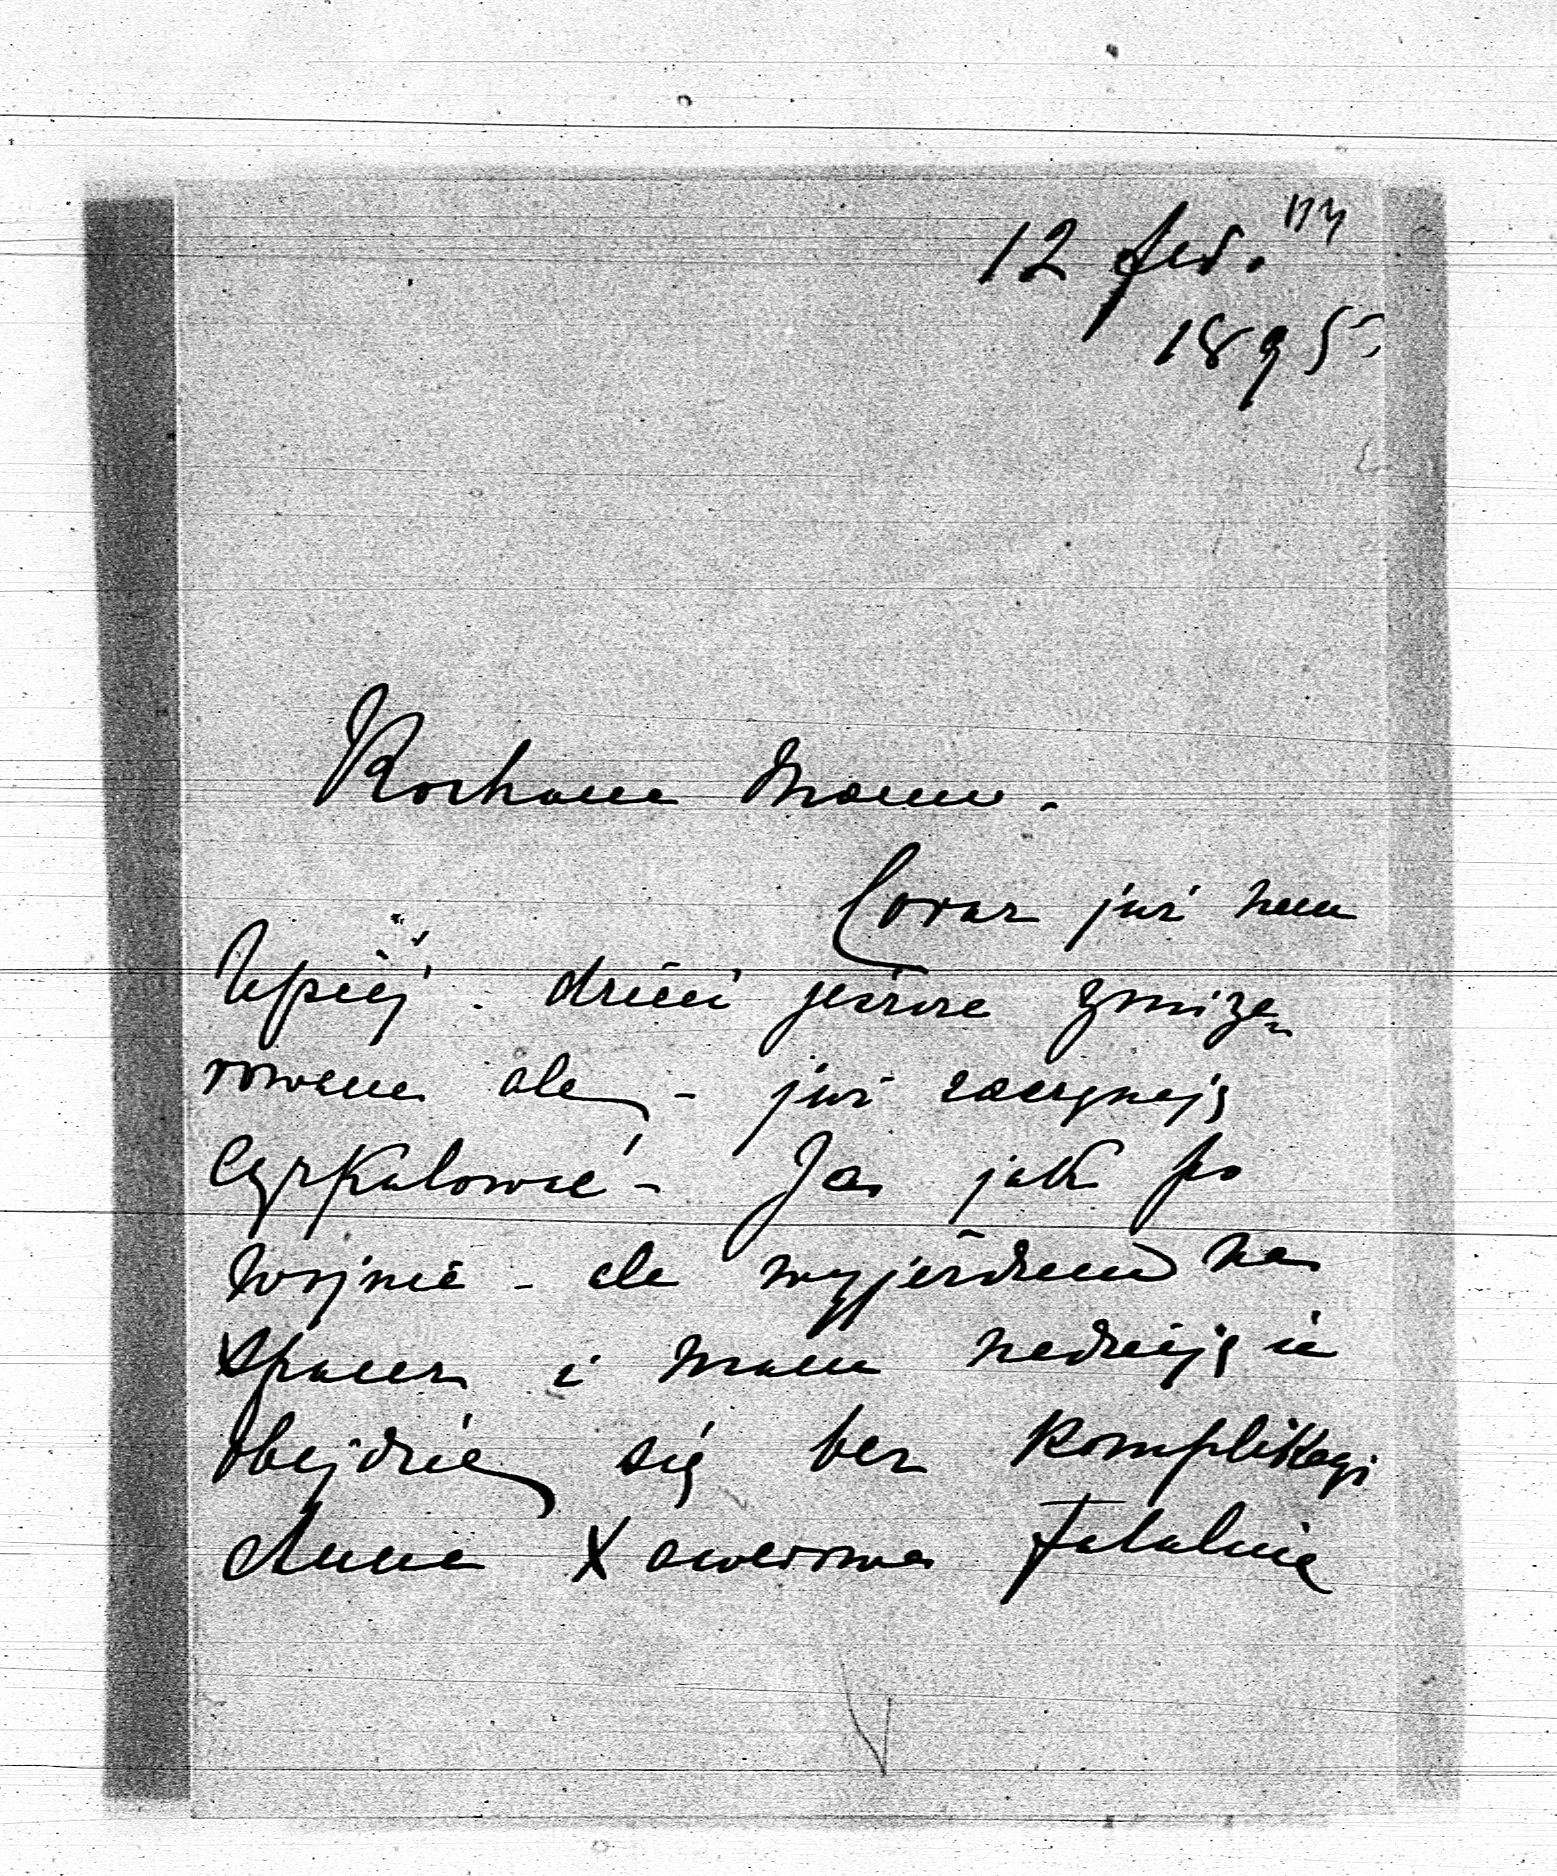 12 feb.
1895
Kochana Mamo.
Coraz już nam
lepiej. dzieci jeszcze zmize-
rowane ale - już zaczynają
Cyrkulować - Ja jak po
wojnie - ale wyjeżdżam na
spacer i mam nadzieję że
obejdzie się bez komplikacyi
Anna Xawerowa Fatalnie